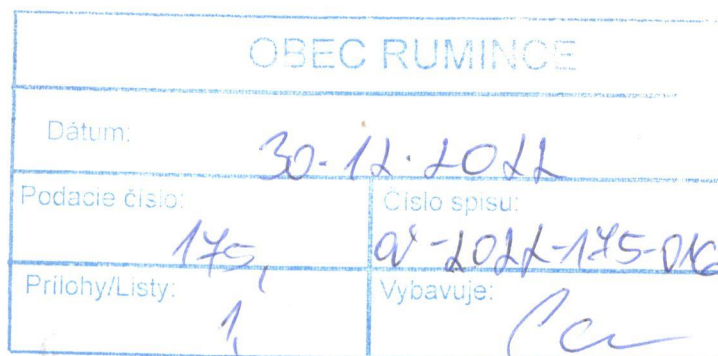 OBEC RUMINCE
Dátum: 30.12.2022
Podacie číslo: 175,
Číslo spisu: OÚ-2022-175-016
Prílohy/Listy: 1,
Vybavuje: